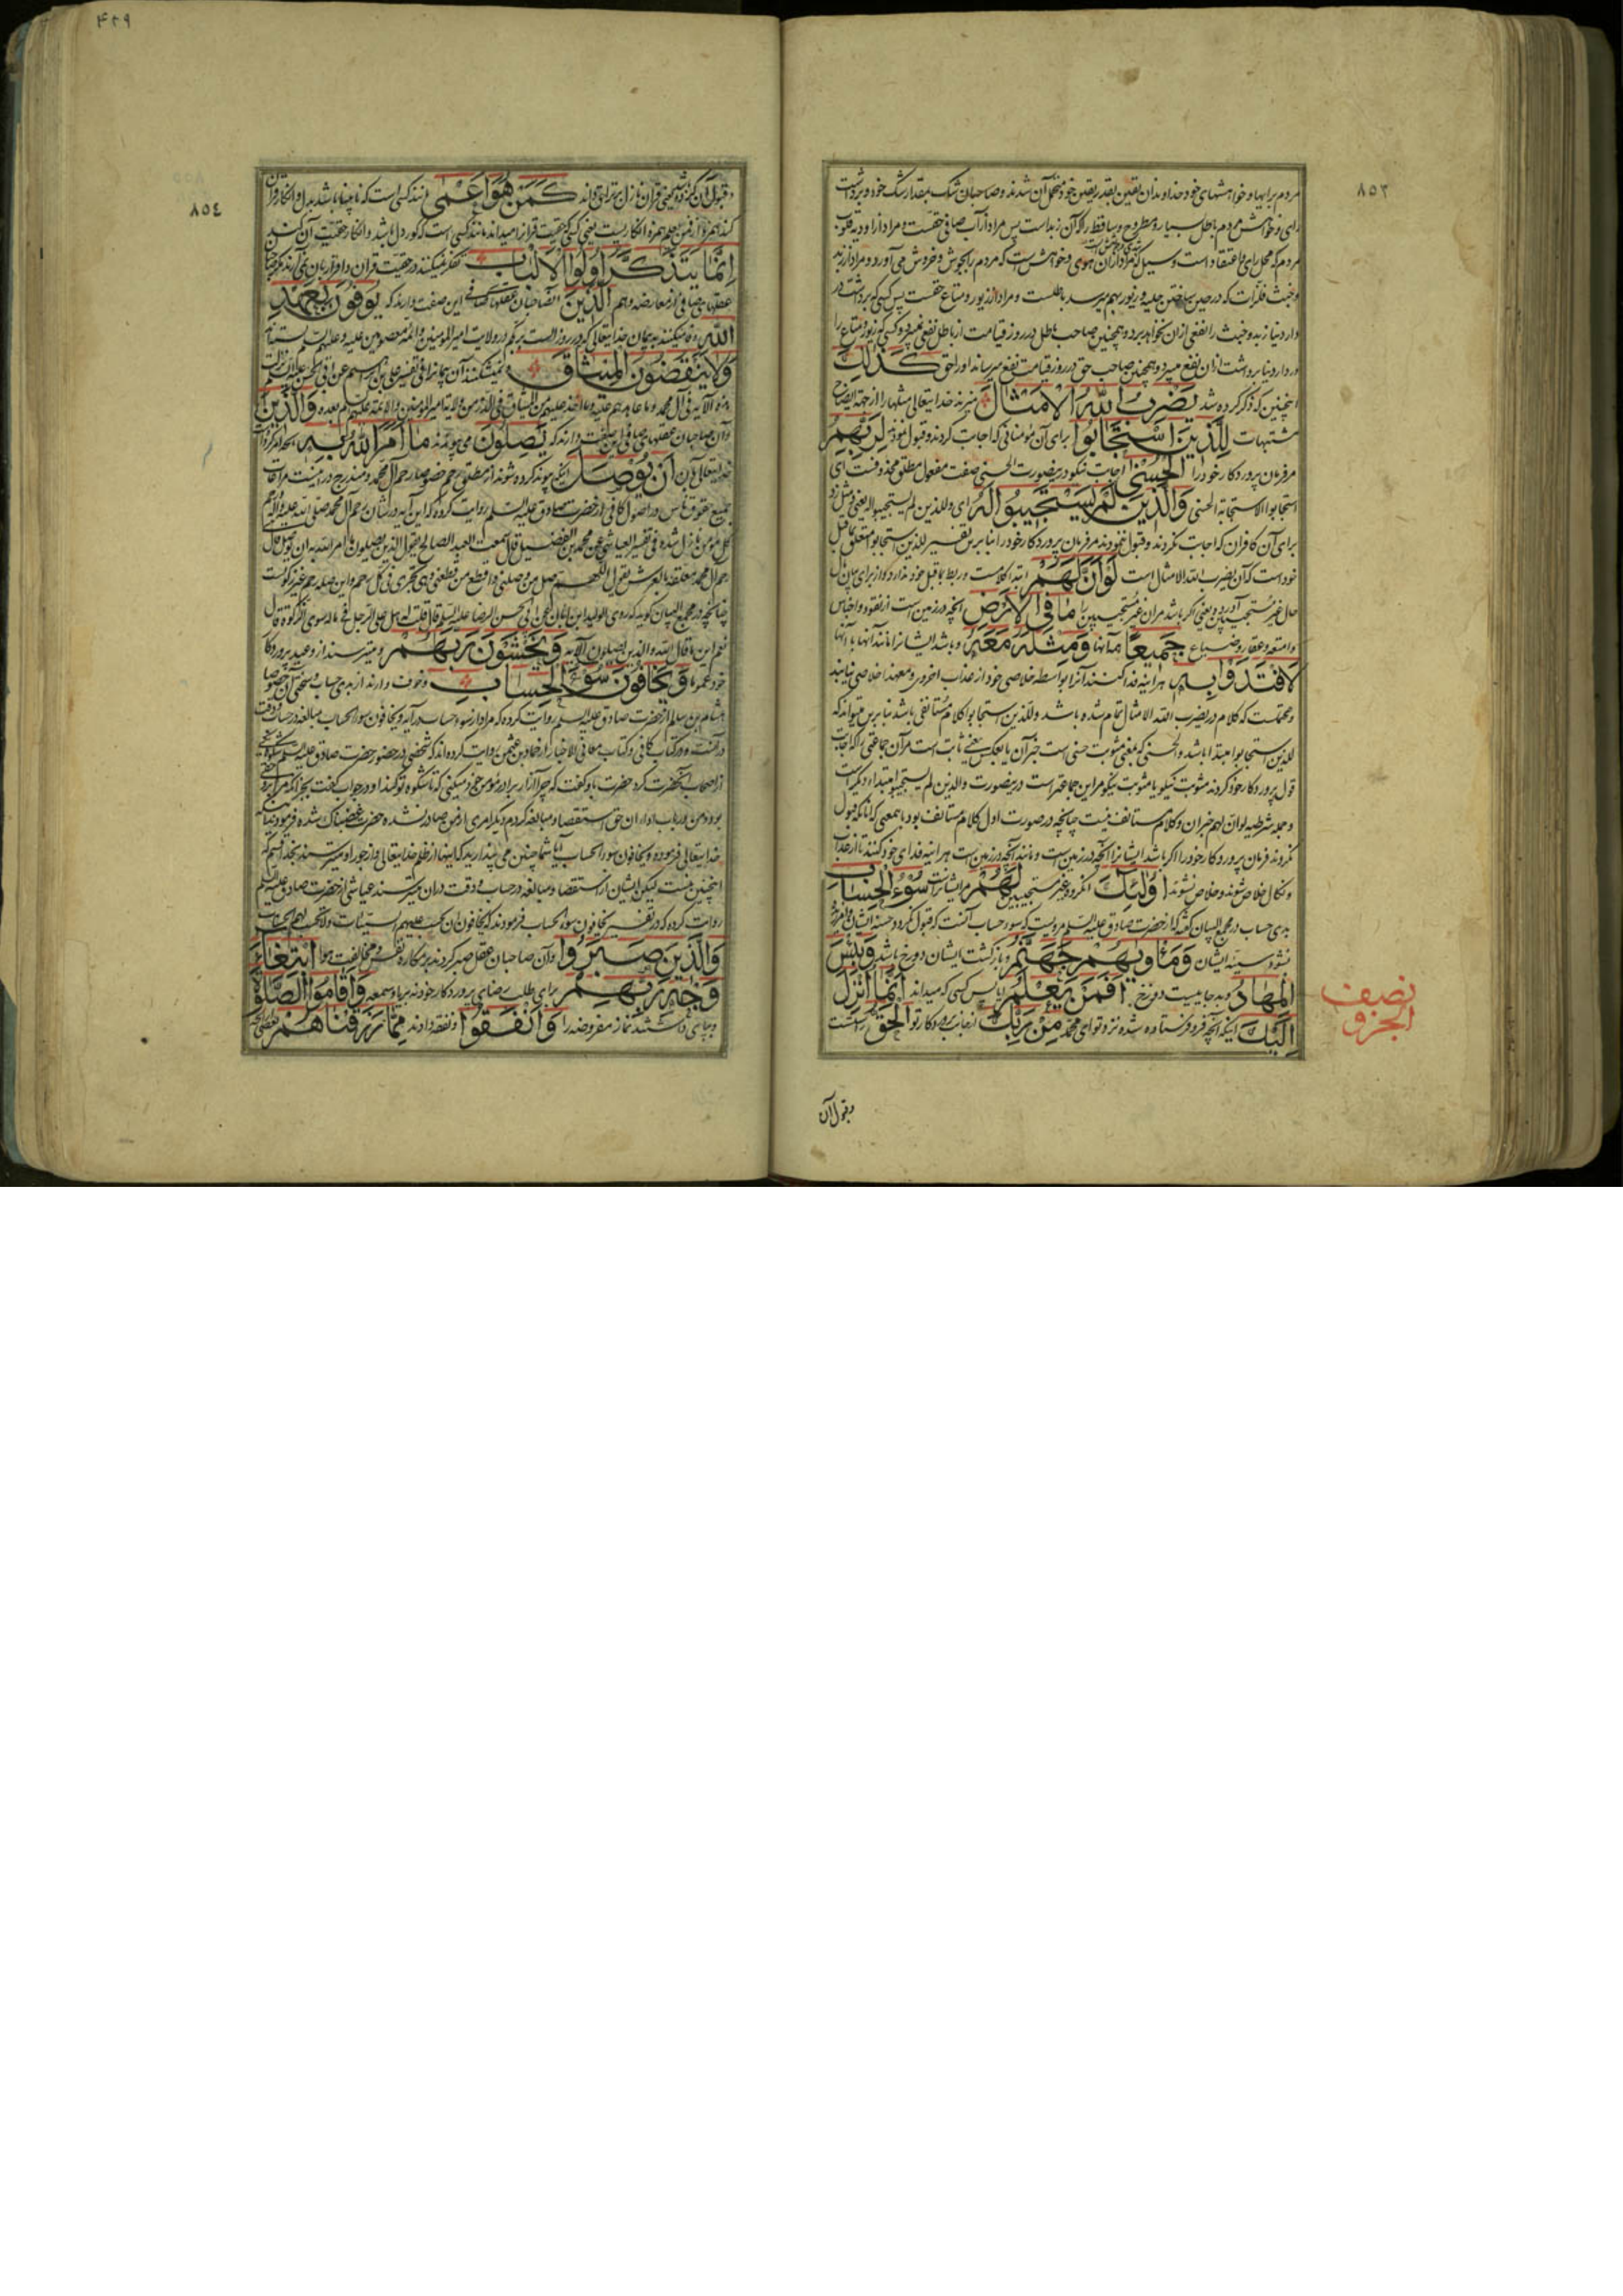 ٨٥٣
مردم برایها و خواهشهای خود خداوندان یقین بقدر یقین خود متحمل آن شدند و صاحبان شک بمقدار شک خود و برداشت
رای و خواهش مردم باطل بسیار و مطروح و ساقط
مردم که محل رای و اعتقاد است و سیل که مراد از آن هوی و خواهش است که مردم را بجوش و خروش می آورد و مراد از زبد
دارد نیاز بد و خبث را نفعی از آن نخواهد برد و همچنین صاحب باطل در روز قیامت از باطل نفع نمیبرد و کسی که زیور و متاع را
در دار دنیا برداشت از آن نفع میبرد و همچنین صاحب حق در روز قیامت نفع میرساند او را حق كَذٰلِكَ
اینچنین که ذکر کرده شد يَضْرِبُ اللّٰهُ الْاَمْثَالَ میزند خدایتعالی مثلها را از جهة ایضاح
مشتبهات لِلَّذِينَ اسْتَجَابُوا برای آن مؤمنانی که اجابت کردند و قبول نمودند لِرَبِّهِمُ
مر فرمان پروردکار خود را الْحُسْنٰى اجابت نیکو و درینصورت الحسنی صفت مفعول مطلق محذوفست ای
استجابوا الاستجابة الحسنی وَالَّذِينَ لَمْ يَسْتَجِيبُوا لَهُ ای وللذین لم یستجیبوا له یعنی و مثل زد
برای آن کافران که اجابت نکردند و قبول ننمودند مر فرمان پروردکار خود را بنابرین تفسیر للذین استجابوا متعلق بماقبل
خود است که آن یضرب الله الامثال است لَوْ اَنَّ لَهُمْ ابتداء کلامست و ربط بماقبل خود ندارد و از برای بیان مآل
حال غیر مستجیبین آورده یعنی اکر باشد مر آن غیر مستجیبین را مَا فِي الْاَرْضِ آنچه در زمین است از نقود و اجناس
وامتعه و عقار و ضیاع جَمِيعًا همه آنها وَمِثْلَهُ مَعَهُ و باشد ایشانرا مانند آنها با آنها
لَافْتَدَوْا بِهِ هر اینه فدا کنند آنرا بواسطه خلاصی خود از عذاب اخروی و معهذا خلاصی نیابند
و محتملست که کلام در یضرب الله الامثال تمام شده باشد و للذین استجابوا کلام مستأنفی باشد بنابرین میتواند که
للذین استجابوا مبتدا باشد والحسنی که بمعنی مثوبت حسنی است خبر آن یا بعکس یعنی ثابت است مر آن جماعتی را که اجابت
قول پروردکار خود کردند مثوبت نیکو یا مثوبت نیکو مر این جماعتراست و درینصورت والذین لم یستجیبوا مبتداء دیکر است
و جمله شرطیه لو ان لهم خبر آن و کلام مستأنف نیست چنانچه در صورت اول کلام مستأنف بود باینمعنی که آنانکه قبول
نکردند فرمان پروردکار خود را اکر باشد ایشانرا آنچه در زمین است و مانند آنچه در زمین است هر اینه فدای خود کنند تا از عذاب
و نکال خلاص شوند و خلاص نشوند اُولٰئِكَ آنکروه غیر مستجیبین لَهُمْ مر ایشانراست سُوءُ الْحِسَابِ
بدی حساب در مجمع البیان کفته که از حضرت صادق علیه السلم مرویست که سوء حساب آنست که قبول نکردد حسنه ایشان و آمرزیده
نشود سیئه ایشان وَمَأْوٰيهُمْ جَهَنَّمُ و بازکشت ایشان دوزخ باشد وَبِئْسَ
الْمِهَادُ و بد جاییست دوزخ اَفَمَنْ يَعْلَمُ ایا پس کسی که میداند اَنَّمَا اُنْزِلَ
اِلَيْكَ اینکه آنچه فرو فرستاده شده نزد تو ای محمد مِنْ رَبِّكَ از جانب پروردکار تو الْحَقُّ راستست
نصف
الجزو
و قبول آن
٤٢٩
٨٥٤
كَمَنْ هُوَ اَعْمٰى مانند کسی است که نابینا باشد
اِنَّمَا يَتَذَكَّرُ اُولُوا الْاَلْبَابِ تفکر نمیکنند در حقیت قران و اقرار بان نمی آرند مکر صاحبان
عقلهای صافی از معارضه وهم الَّذِينَ آنصاحبان عقلها که این صفت دارند که يُوفُونَ بِعَهْدِ
اللّٰهِ وفا میکنند به پیمان خدایتعالی که در روز الست در ولایت امیر المومنین و ائمه معصومین علیه و علیهم السلم بسته اند
وَلَا يَنْقُضُونَ الْمِيثَاقَ و نمیشکنند آن پیمانرا فی تفسیر علی بن ابراهیم عن ابی الحسن علیه السلم نزلت
هذه الآیه فی آل محمد وما عاهدهم علیه وما اخذ علیهم من المیثاق فی الذر من ولایة امیر المؤمنین والائمة علیهم السلم بعده وَالَّذِينَ
و آن صاحبان عقلهای صافی این صفت دارند که يَصِلُونَ می پیوندند مَا اَمَرَ اللّٰهُ بِهِ
خدایتعالی بآن اَنْ يُوصَلَ اینکه پیوند کرده شوند از مطلق رحم خصوصا رحم آل محمد و مندرج در اینست مراعات
جمیع حقوق ناس و در اصول کافی از حضرت صادق علیه السلم روایت کرده که این آیه در شان رحم آل محمد صلی الله علیه و آله و رحم
کل مؤمن نازل شده فی تفسیر العیاشی عن محمد بن الفضیل قال سمعت العبد الصالح یقول الذین یصلون ما امر الله به ان یوصل قال
رحم آل محمد معلقة بالعرش یقول اللهم صل من وصلنی واقطع من قطعنی وهی تجری فی کل رحم و این صله رحم غیر زکوتست
چنانچه در مجمع البیان کوید که روی الولید ابن ابان عن ابی الحسن الرضا علیه السلم قال قلت له هل علی الرجل فی ماله سوی الزکوة قال
نعم این ما قال الله والذین یصلون الآیه وَيَخْشَوْنَ رَبَّهُمْ و میترسند از وعید پروردکار
خود عموما وَيَخَافُونَ سُوءَ الْحِسَابِ و خوف دارند از بدی حساب و سختی آن خصوصا
هشام بن سالم از حضرت صادق علیه السلم روایت کرده که مراد از سوء حساب در آیه و یخافون سوء الحساب مبالغه در حساب و دقت
در آنست و در کتاب کافی و کتاب معانی الاخبار از حماد بن عثمان روایت کرده اند که شخصی در حضور حضرت صادق علیه السلم شکوه شخصی
از اصحاب آنحضرت کرد حضرت باو کفت که چرا آزار برادر مؤمن خود میکنی که تا شکوه تو کند او در جواب کفت
بود و من در باب ادای ان حق استقصا و مبالغه کردم دیکر امری از من صادر نشده حضرت غضبناک شده فرمود
خدایتعالی فرموده و یخافون سوء الحساب آیا شما چنین می پندارید که اینها از ظلم خدایتعالی و از جور او میترسند بخدا قسم که
اینچنین نیست لیکن ایشان از استقصا و مبالغه در حساب و دقت در آن میترسند عیاشی از حضرت صادق علیه السلم
روایت کرده که در تفسیر یخافون سوء الحساب فرمودند که یخافون ان یحسب علیهم السیئات ولا تحسب لهم الحسنات
وَالَّذِينَ صَبَرُوا و آن صاحبان عقل صبر کردند بر مکاره نفس و مخالفت هوا ابْتِغَاءَ
وَجْهِ رَبِّهِمْ برای طلب رضای پروردکار خود نه بریا و سمعه وَاَقَامُوا الصَّلٰوةَ
و بپای داشتند نماز مفروضه را وَاَنْفَقُوا و نفقه دادند مِمَّا رَزَقْنَاهُمْ